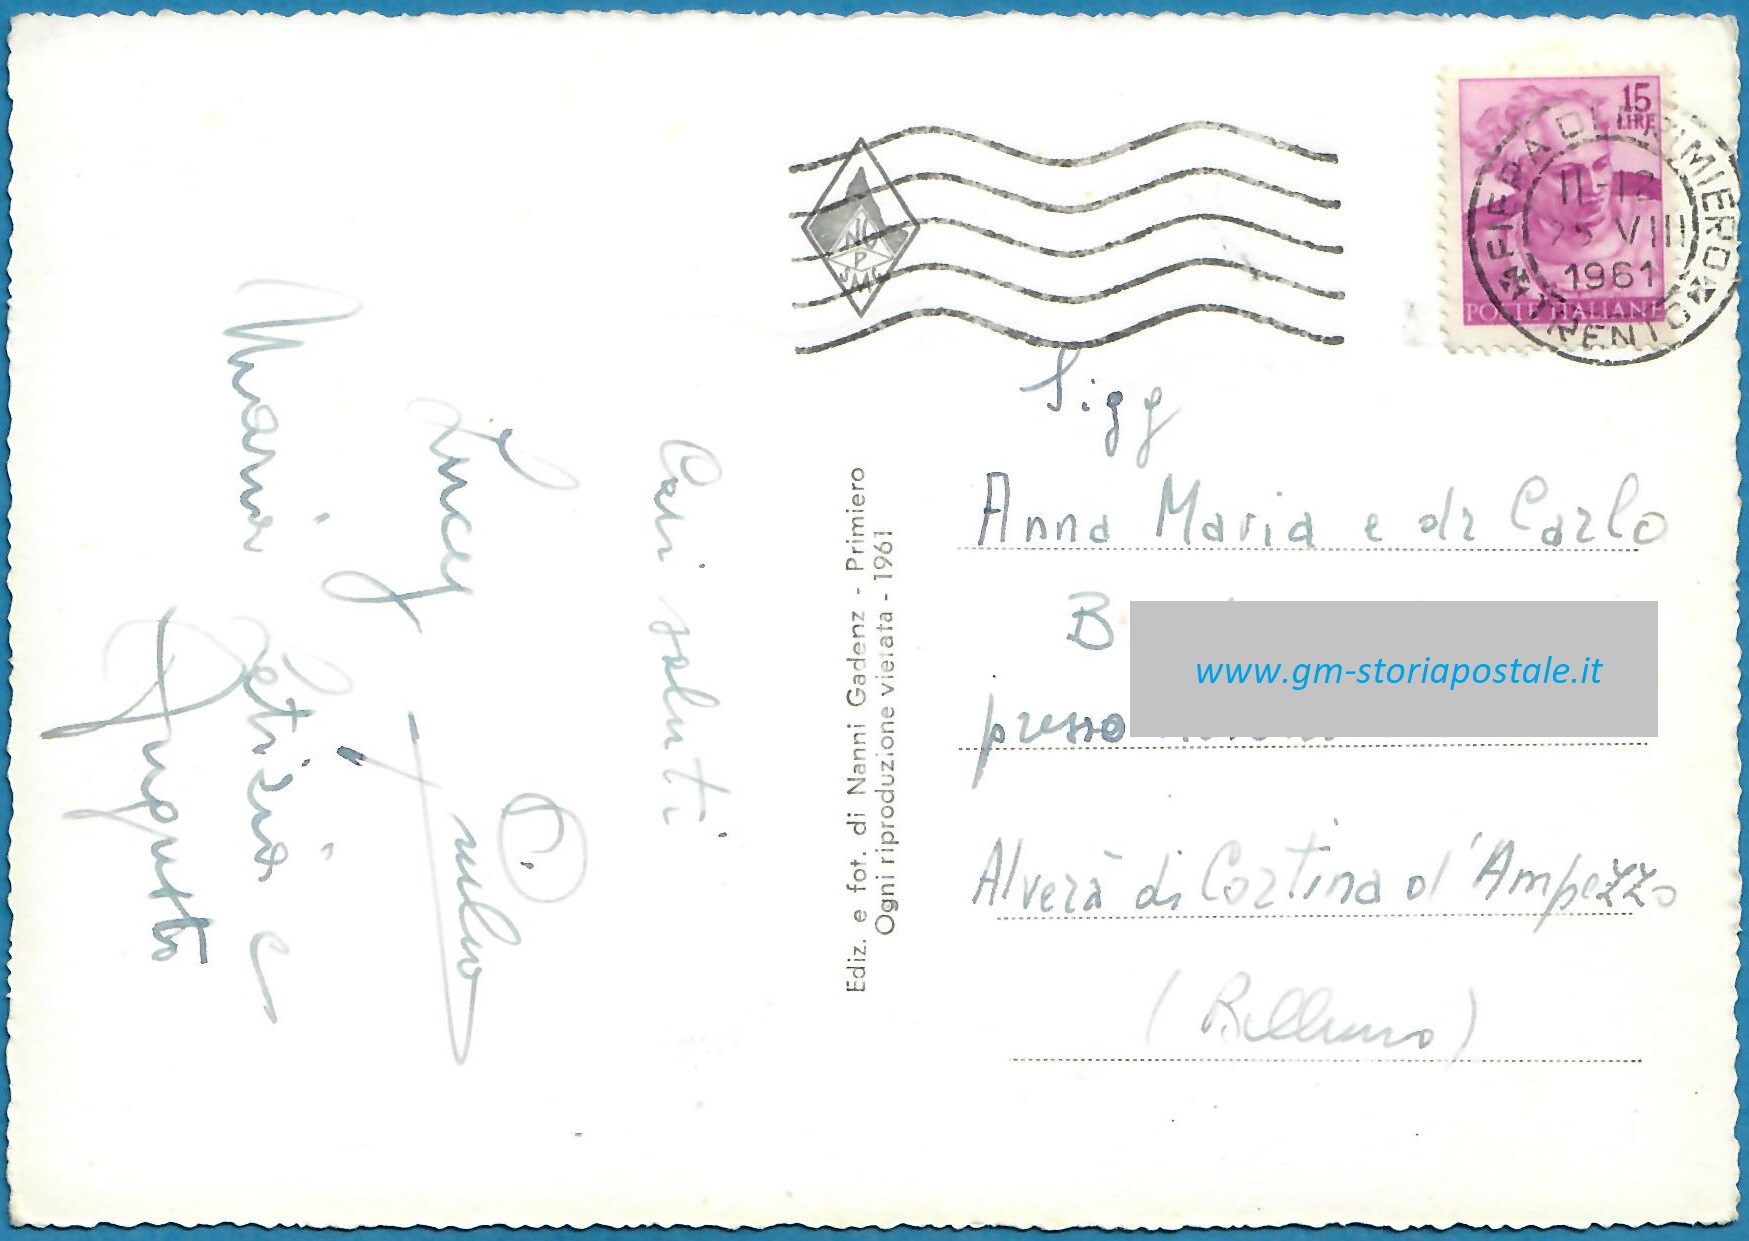 15
LIRE
POSTE ITALIANE
FIERA DI PRIMIERO
TRENTO
11-12
25 VIII
1961
Sigg
Anna Maria e dr Carlo
B
www.gm-storiapostale.it
presso
Alverà di Cortina d'Ampezzo
(Belluno)
Ediz. e fot. di Nanni Gadenz - Primiero
Ogni riproduzione vietata - 1961
Cari saluti
Lucy
Maria Letizia e
Augusto